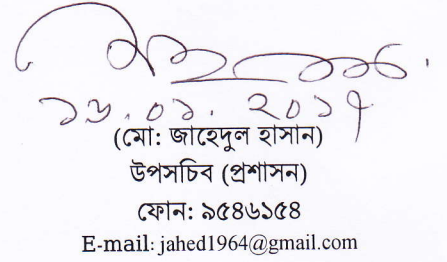 ১৬.০১.২০১৭
(মো: জাহেদুল হাসান)
উপসচিব (প্রশাসন)
ফোন: ৯৫৪৬১৫৪
E-mail: jahed1964@gmail.com